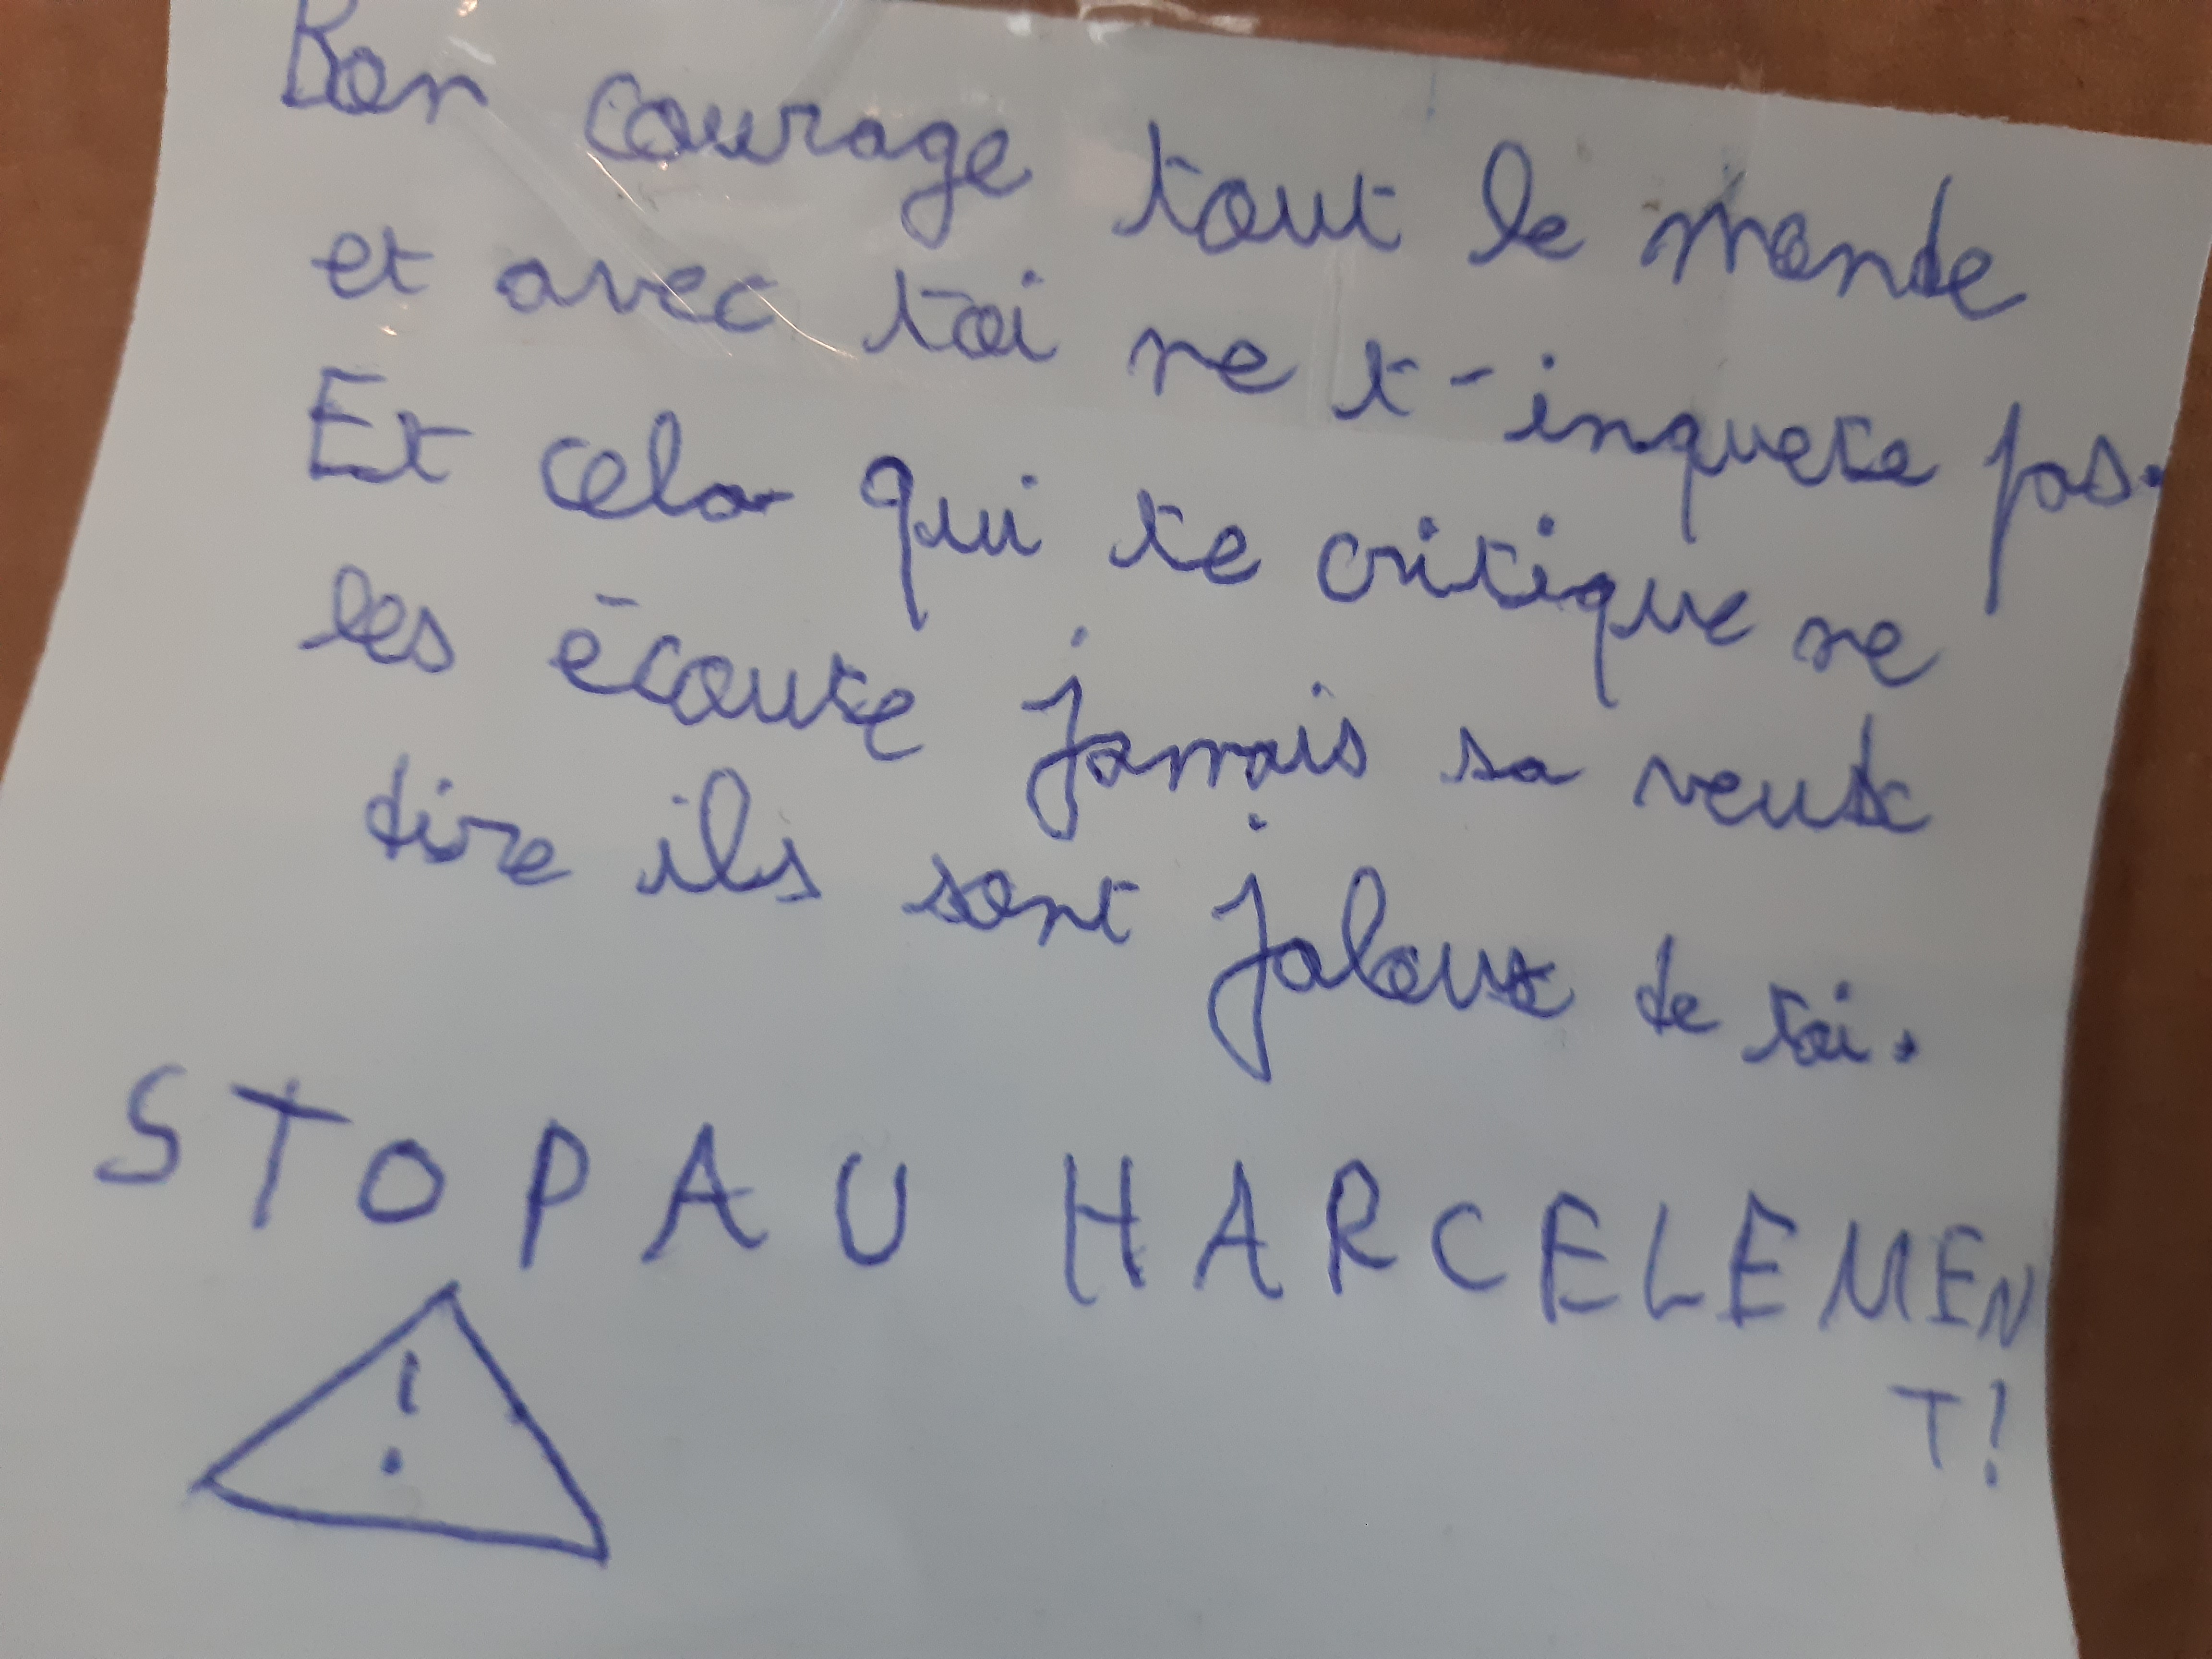 Bon courage tout le monde
et avec toi ne t-inquete pas.
Et cela qui te critique ne
les écoute jamais sa veux
dire ils sont jaloux de toi.
STOP AU HARCELEMEN
T!
!